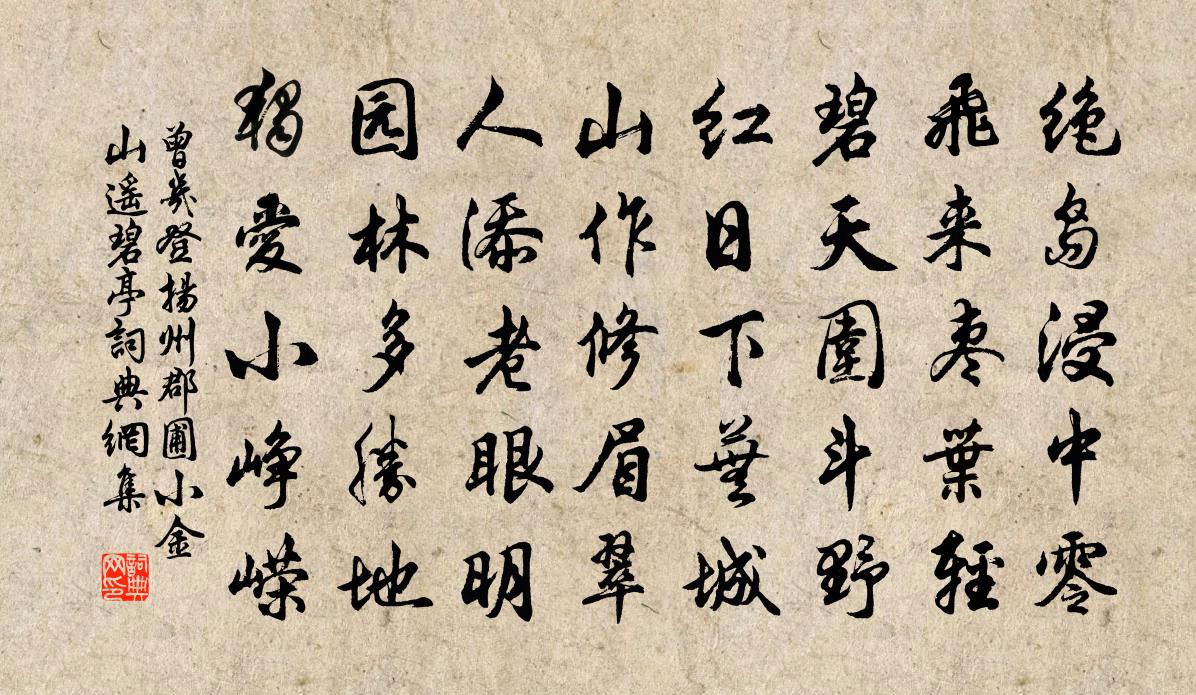 绝岛浸中零
飛来枣葉輕
碧天圍斗野
红日下蕪城
山作修眉翠
人添老眼明
园林多勝地
獨愛小峥嵘
曾幾登揚州郡圃小金
山遥碧亭詞典網集
詞典网印